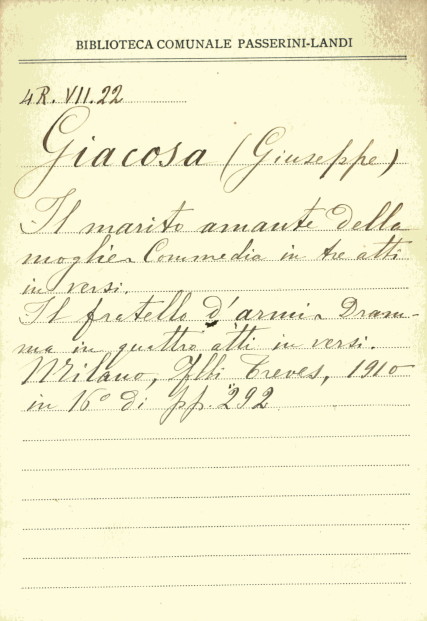 BIBLIOTECA COMUNALE PASSERINI-LANDI
4R. VII. 22
Giacosa (Giuseppe)
Il marito amante della
moglie - Commedia in tre atti
in versi.
Il fratello d'armi - Dram-
ma in quattro atti in versi.
Milano, Flli Treves, 1910
in 16° di pp. 292